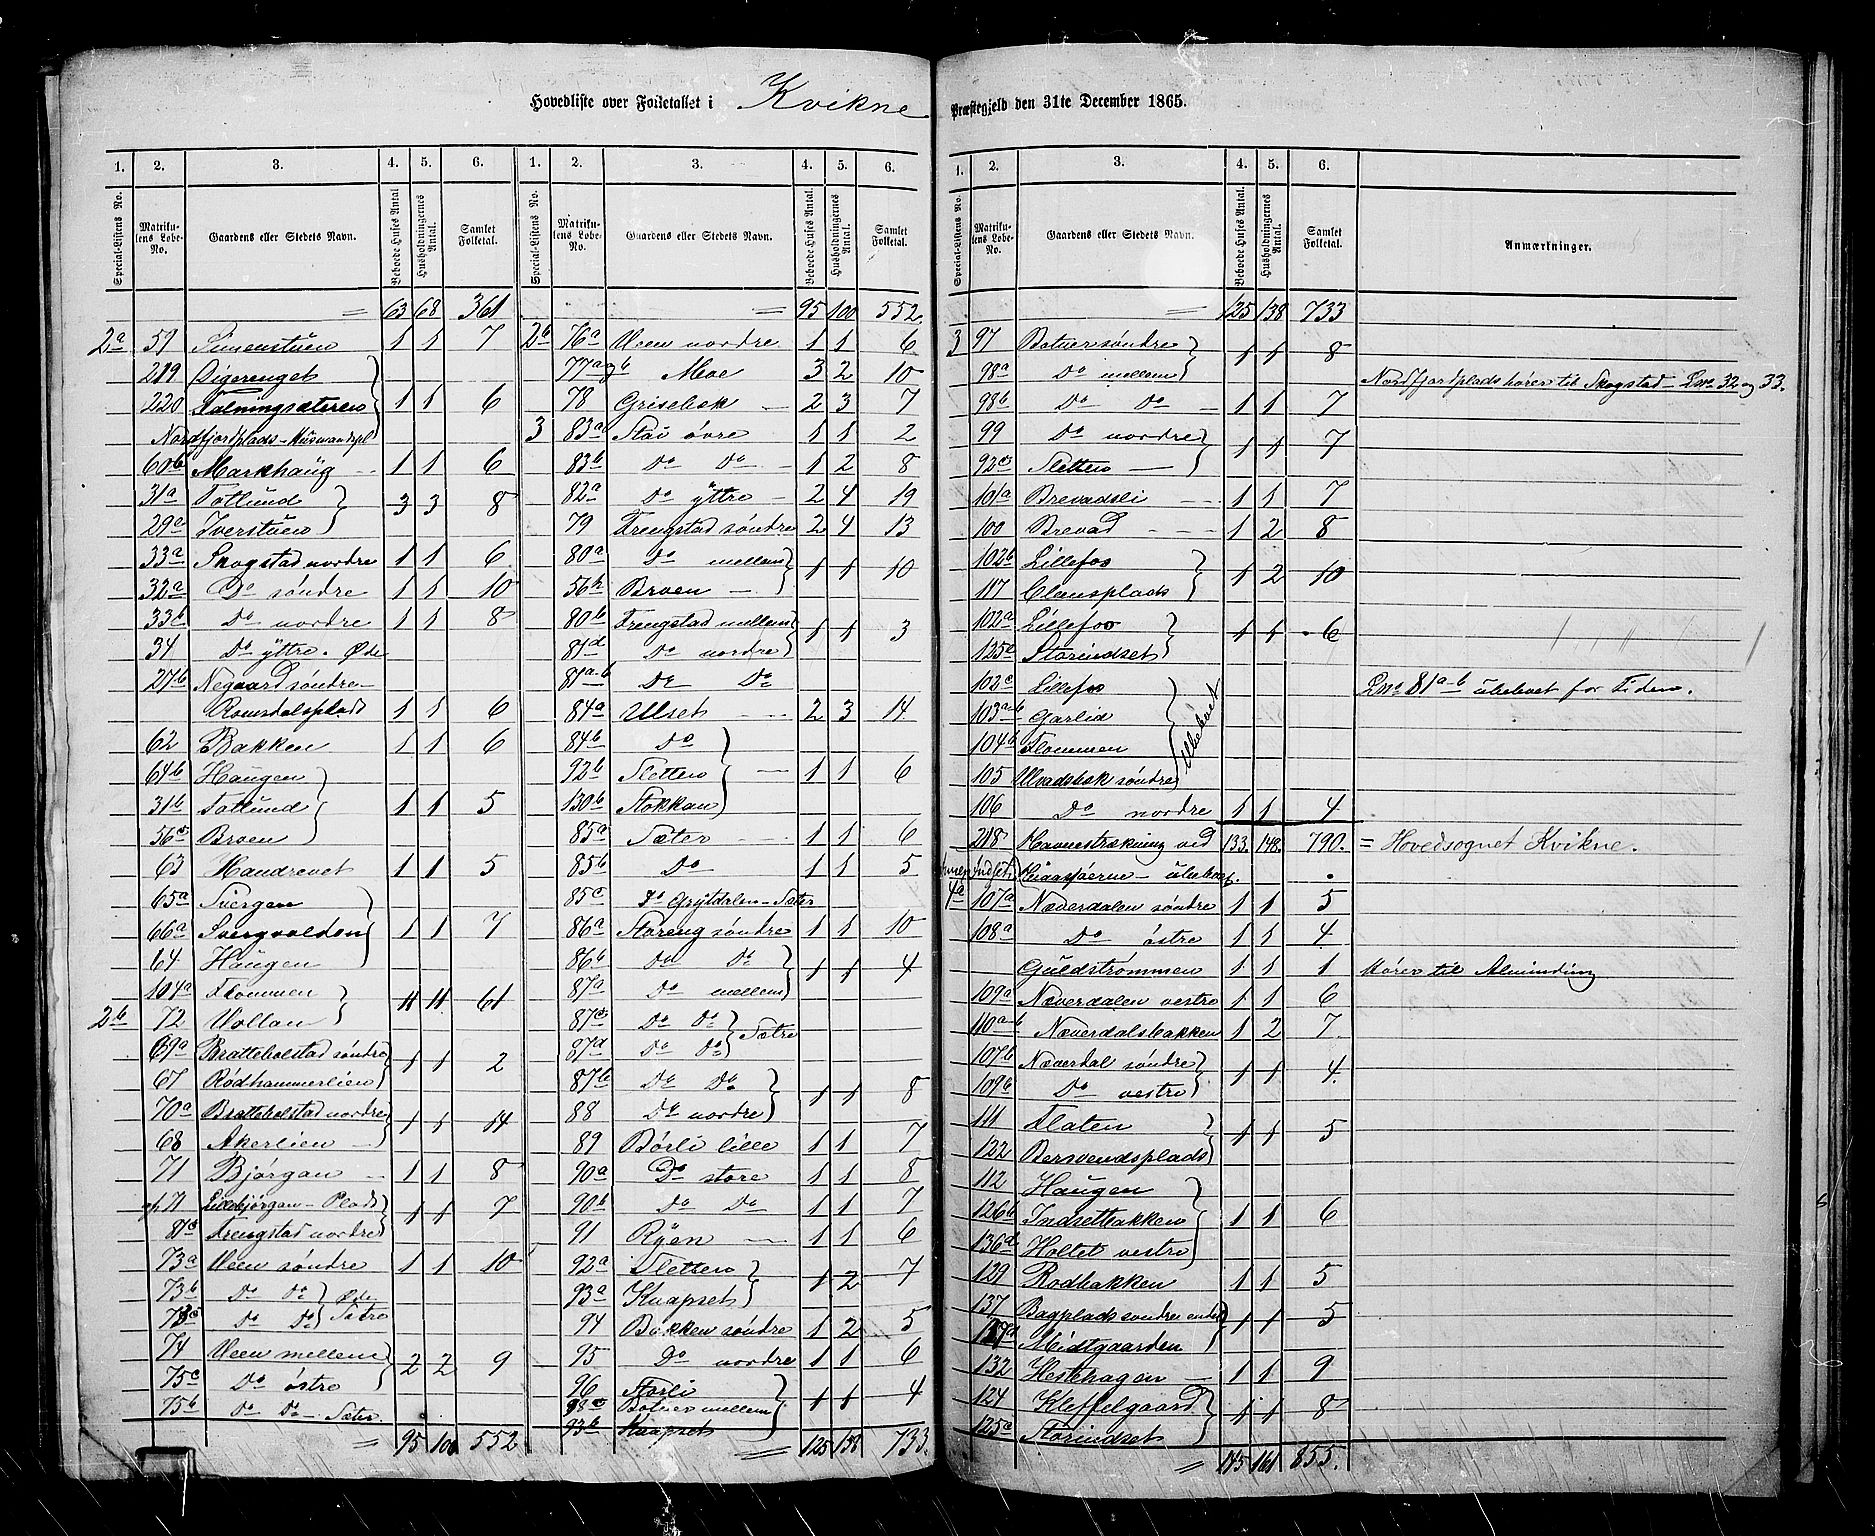 Hovedliste over Folketallet i Kvikne Præstegjeld den 31te December 1865.
1. 2. 3. 4. 5. 6.
Special-Listens No. Matrikulens Løbe-No. Gaardens eller Stedets Navn. Beboede Huses Antal Husholdningernes Antal. Samlet Folketal.
= 63 68 361
2a 59 Simenstuen 1 1 7
219 Digerenget
220 Falningsæteren 1 1 6
Nordfjordplads - Husmandspl
60b Markhaug 1 1 6
31a Fatlund 3 3 8
29e Iverstuen
33a Skogstad nordre 1 1 6
32a Do søndre 1 1 10
33b Do nordre 1 1 8
34 Do yttre. Øde
27b Negaard søndre
Romsdalsplads 1 1 6
62 Bakken 1 1 6
64b Haugen
31b Fatlund 1 1 5
56c Broen
63 Haudrevet 1 1 5
65a Svergen
66a Svergvolden 1 1 7
64 Haugen
104a Flommen 11 11 61
2b 72 Vollan
69a Brattebolstad søndre 1 1 2
67 Rødhammerlien
70a Brattebolstad nordre 1 1 14
68 Akerlien
71 Bjørgan 1 1 8
af 71 Lillebjørgan - Plads 1 1 7
81c Frengstad nordre
73a Veen søndre 1 1 10
73b Do Do Øde
73c Do Do Sætre
74 Veen mellem 2 2 9
75c Do østre
75b Do Do - Sæter
= 95 100 552
1. 2. 3. 4. 5. 6.
Special-Listens No. Matrikulens Løbe-No. Gaardens eller Stedets Navn. Beboede Huses Antal Husholdningernes Antal. Samlet Folketal.
= 95 100 552.
2b 76a Veen nordre 1 1 6
77a og b Moe 3 2 10
78 Grisebak 2 3 7
3 83a Stai øvre 1 1 2
83b Do Do 1 2 8
82a Do yttre 2 4 19
79 Frengstad søndre 2 4 13
80a Do mellem 1 1 10
56b Broen
80b Frengstad mellem 1 1 3
81d Do nordre
81a-b Do Do
84a Ulset 2 3 14
84b Do
92b Sletten 1 1 6
130b Stokkan
85a Sæter 1 1 6
85b Do 1 1 5
85c Do Grytdalen - Sæter
86a Storeng søndre 1 1 10
86b Do Do 1 1 4
87a Do mellem
87c Do Do Sætre
87d Do Do
87b Do Do 1 1 8
88 Do nordre
89 Børli lille 1 1 7
90a Do store 1 1 8
90b Do Do 1 1 7
91 Ryen 1 1 6
92a Sletten 1 2 7
93a Knapset
94 Bakken søndre 1 2 5
95 Do nordre 1 1 6
96 Storli 1 1 4
98c Botner mellem
93b Knapset
= 125 138 733.
1. 2. 3. 4. 5. 6.
Special-Listens No. Matrikulens Løbe-No. Gaardens eller Stedets Navn. Beboede Huses Antal. Husholdningernes Antal. Samlet Folketal. Anmærkninger.
= 125 138 733
3 97 Botner søndre 1 1 8
98a Do mellem
Nordfjordplads hører til Skogstad - Lno 32 og 33.
98b Do Do 1 1 7
99 Do nordre 1 1 7
92c Sletten
101a Brevadsli 1 1 7
100 Brevad 1 2 8
102b Lillefos 1 2 10
117 Clausplads
102a Lillefos 1 1 6
125c Storindset
102c Lillefos Lno 81a-b ubeboet for Tiden.
103a-b Garlid
104b Flommen Ubeboet
105 Ulvadsbak søndre
106 Do nordre 1 1 4
218 Havnestrækning ved 133. 148. 790. = Hovedsognet Kvikne.
Annex Indset Hiaasjøerne - ubeboet.
4a 107a Næverdalen søndre 1 1 5
108a Do østre 1 1 4
Guldstrømmen 1 1 1 Hører til Alminding
109a Næverdalen vestre 1 1 6
110a-b Næverdalsbakken 1 2 7.
107b Næverdal søndre 1 1 4.
109b Do vestre
111 Flaten 1 1 5
122 Bersvendsplads
112 Haugen
126b Indsetbakken 1 1 6
136d Holtet vestre
129 Rødbakken 1 1 5
137 Bagplads søndre 1 1 5
Midtgaarden
132 Hestehagen 1 1 9
124 Kleffelgaard 1 1 8
125a Storindset
= 145 161 855.